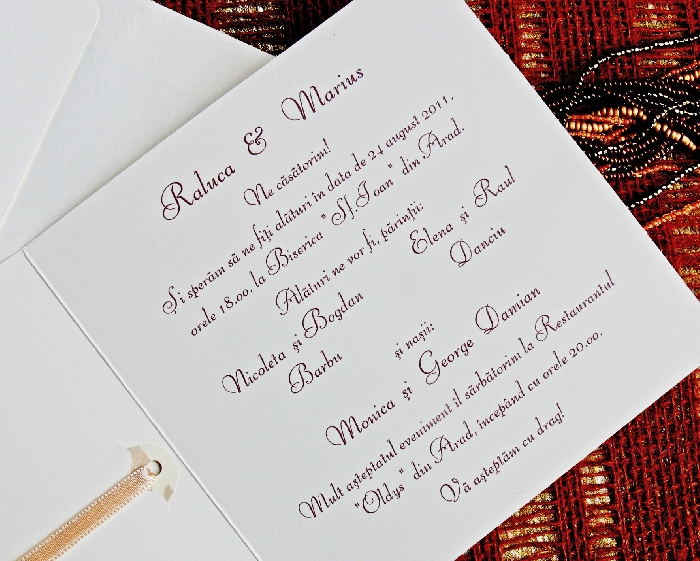 Raluca & Marius
Ne căsătorim!
Şi sperăm să ne fiţi alături în data de 24 august 2011,
orele 18.00, la Biserica "Sf. Ioan" din Arad.
Alături ne vor fi, părinţii:
Nicoleta şi Bogdan
Barbu
Elena şi Raul
Danciu
şi naşii:
Monica şi George Damian
Mult aşteptatul eveniment îl sărbătorim la Restaurantul
"Oldys" din Arad, începând cu orele 20.00.
Vă aşteptăm cu drag!